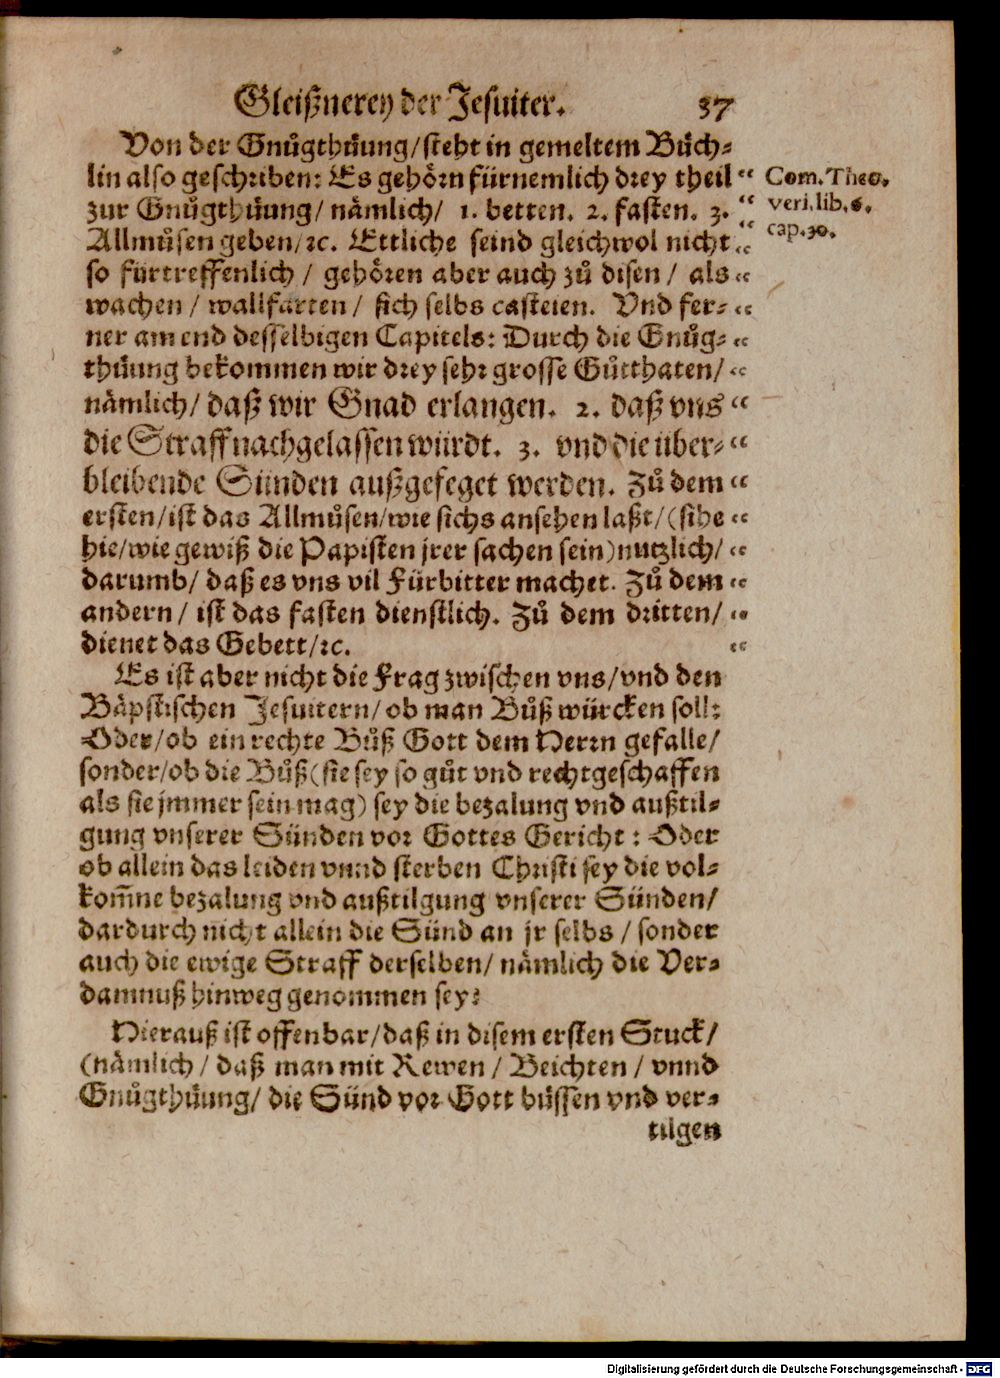 Gleißnerey der Jesuiter. 37
Von der Gnůgthůung/steht in gemeltem Büch-
lin also geschriben: Es gehörn fürnemlich drey theil “ Com. Theo.
zur Gnůgthůung/ nämlich/ 1. betten. 2. fasten. 3. “ veri. lib. 6.
Allmůsen geben/ꝛc. Ettliche seind gleichwol nicht “ cap. 30.
so fürtreffenlich / gehören aber auch zů disen / als “
wachen / wallfarten / sich selbs casteien. Vnd fer- “
ner am end desselbigen Capitels: Durch die Gnůg- “
thůung bekommen wir drey sehr grosse Gůtthaten/ “
nämlich/ daß wir Gnad erlangen. 2. daß vns “
die Straff nachgelassen würdt. 3. vnd die über- “
bleibende Sünden außgefeget werden. Zů dem “
ersten/ist das Allmůsen/wie sichs ansehen laßt/(sihe “
hie/wie gewiß die Papisten jrer sachen sein)nutzlich/ “
darumb/ daß es vns vil Fürbitter machet. Zů dem “
andern / ist das fasten dienstlich. Zů dem dritten/ “
dienet das Gebett/ꝛc. “
Es ist aber nicht die Frag zwischen vns/vnd den
Bäpstischen Jesuitern/ ob man Bůß würcken soll:
Oder/ob ein rechte Bůß Gott dem Herrn gefalle/
sonder/ob die Bůß(sie sey so gůt vnd rechtgeschaffen
als sie jmmer sein mag) sey die bezalung vnd außtil-
gung vnserer Sünden vor Gottes Gericht : Oder
ob allein das leiden vnnd sterben Christi sey die vol-
kom̃ne bezalung vnd außtilgung vnserer Sünden/
dardurch nicht allein die Sünd an jr selbs / sonder
auch die ewige Straff derselben/ nämlich die Ver-
damnuß hinweg genommen sey?
Hierauß ist offenbar/daß in disem ersten Stuck/
(nämlich / daß man mit Rewen / Beichten / vnnd
Gnůgthůung/ die Sünd vor Gott büssen vnd ver-
tilgen
Digitalisierung gefördert durch die Deutsche Forschungsgemeinschaft - DFG